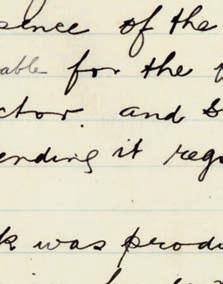 sence of the
able for the
ctor. and
ending it regu
k was produ